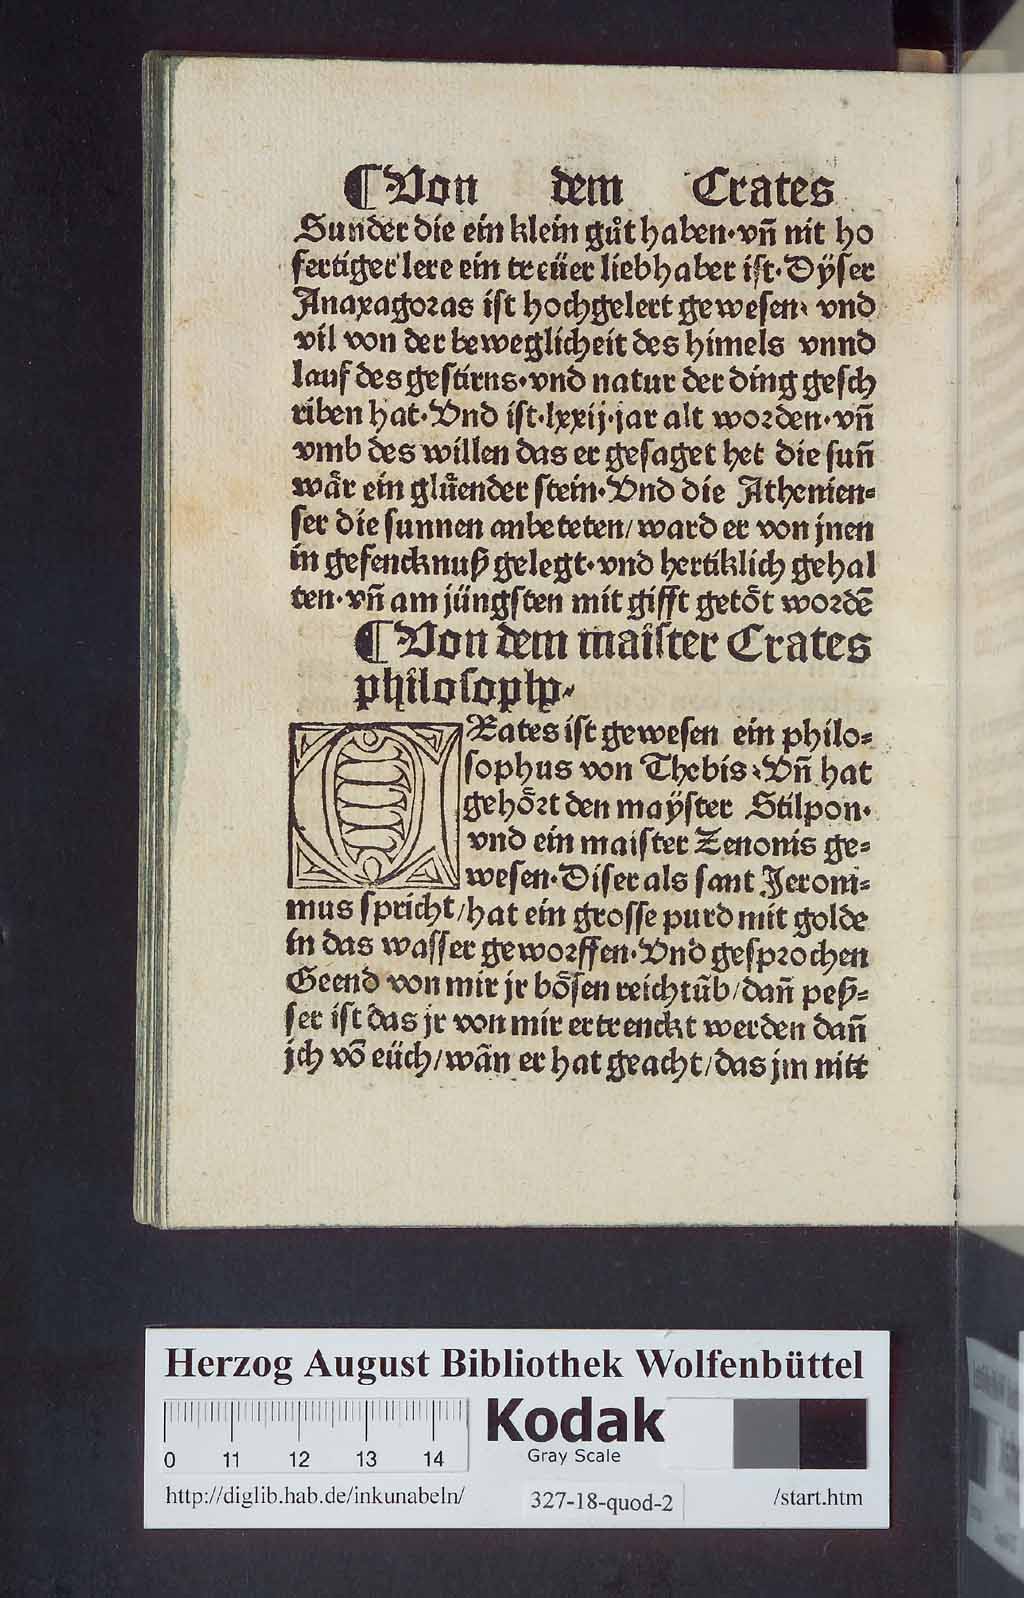 ¶ Von dem Crates
Sunder die ein klein gůt haben·vñ nit ho
fertiger lere ein treüer liebhaber ist·Dÿser
Anaxagoras ist hochgelert gewesen· vnd
vil von der beweglicheit des himels vnnd
lauf des gestirns·vnd natur der ding gesch
riben hat·Vnd ist·lxxij·jar alt worden·vñ
vmb des willen das er gesaget het die suñ
wår ein glůender stein·Vnd die Athenien⸗
ser die sunnen anbeteten/ward er von jnen
in gefencknuß gelegt·vnd hertiklich gehal
ten·vñ am jüngsten mit gifft getöt wordē
¶ Von dem maister Crates
philosophp·
CRates ist gewesen ein philo⸗
sophus von Thebis·Vñ hat
gehört den maÿster Stilpon·
vnd ein maister Zenonis ge⸗
wesen·Diser als sant Jeroni⸗
mus spricht/hat ein grosse purd mit golde
in das wasser geworffen·Vnd gesprochen
Geend von mir jr bösen reichtũb/dañ peß⸗
ser ist das jr von mir ertrenckt werden dañ
jch võ eüch/wãn er hat geacht/das jm nitt
Herzog August Bibliothek Wolfenbüttel
Kodak
Gray Scale
0 11 12 13 14
http://diglib.hab.de/inkunabeln/ 327-18-quod-2 /start.htm